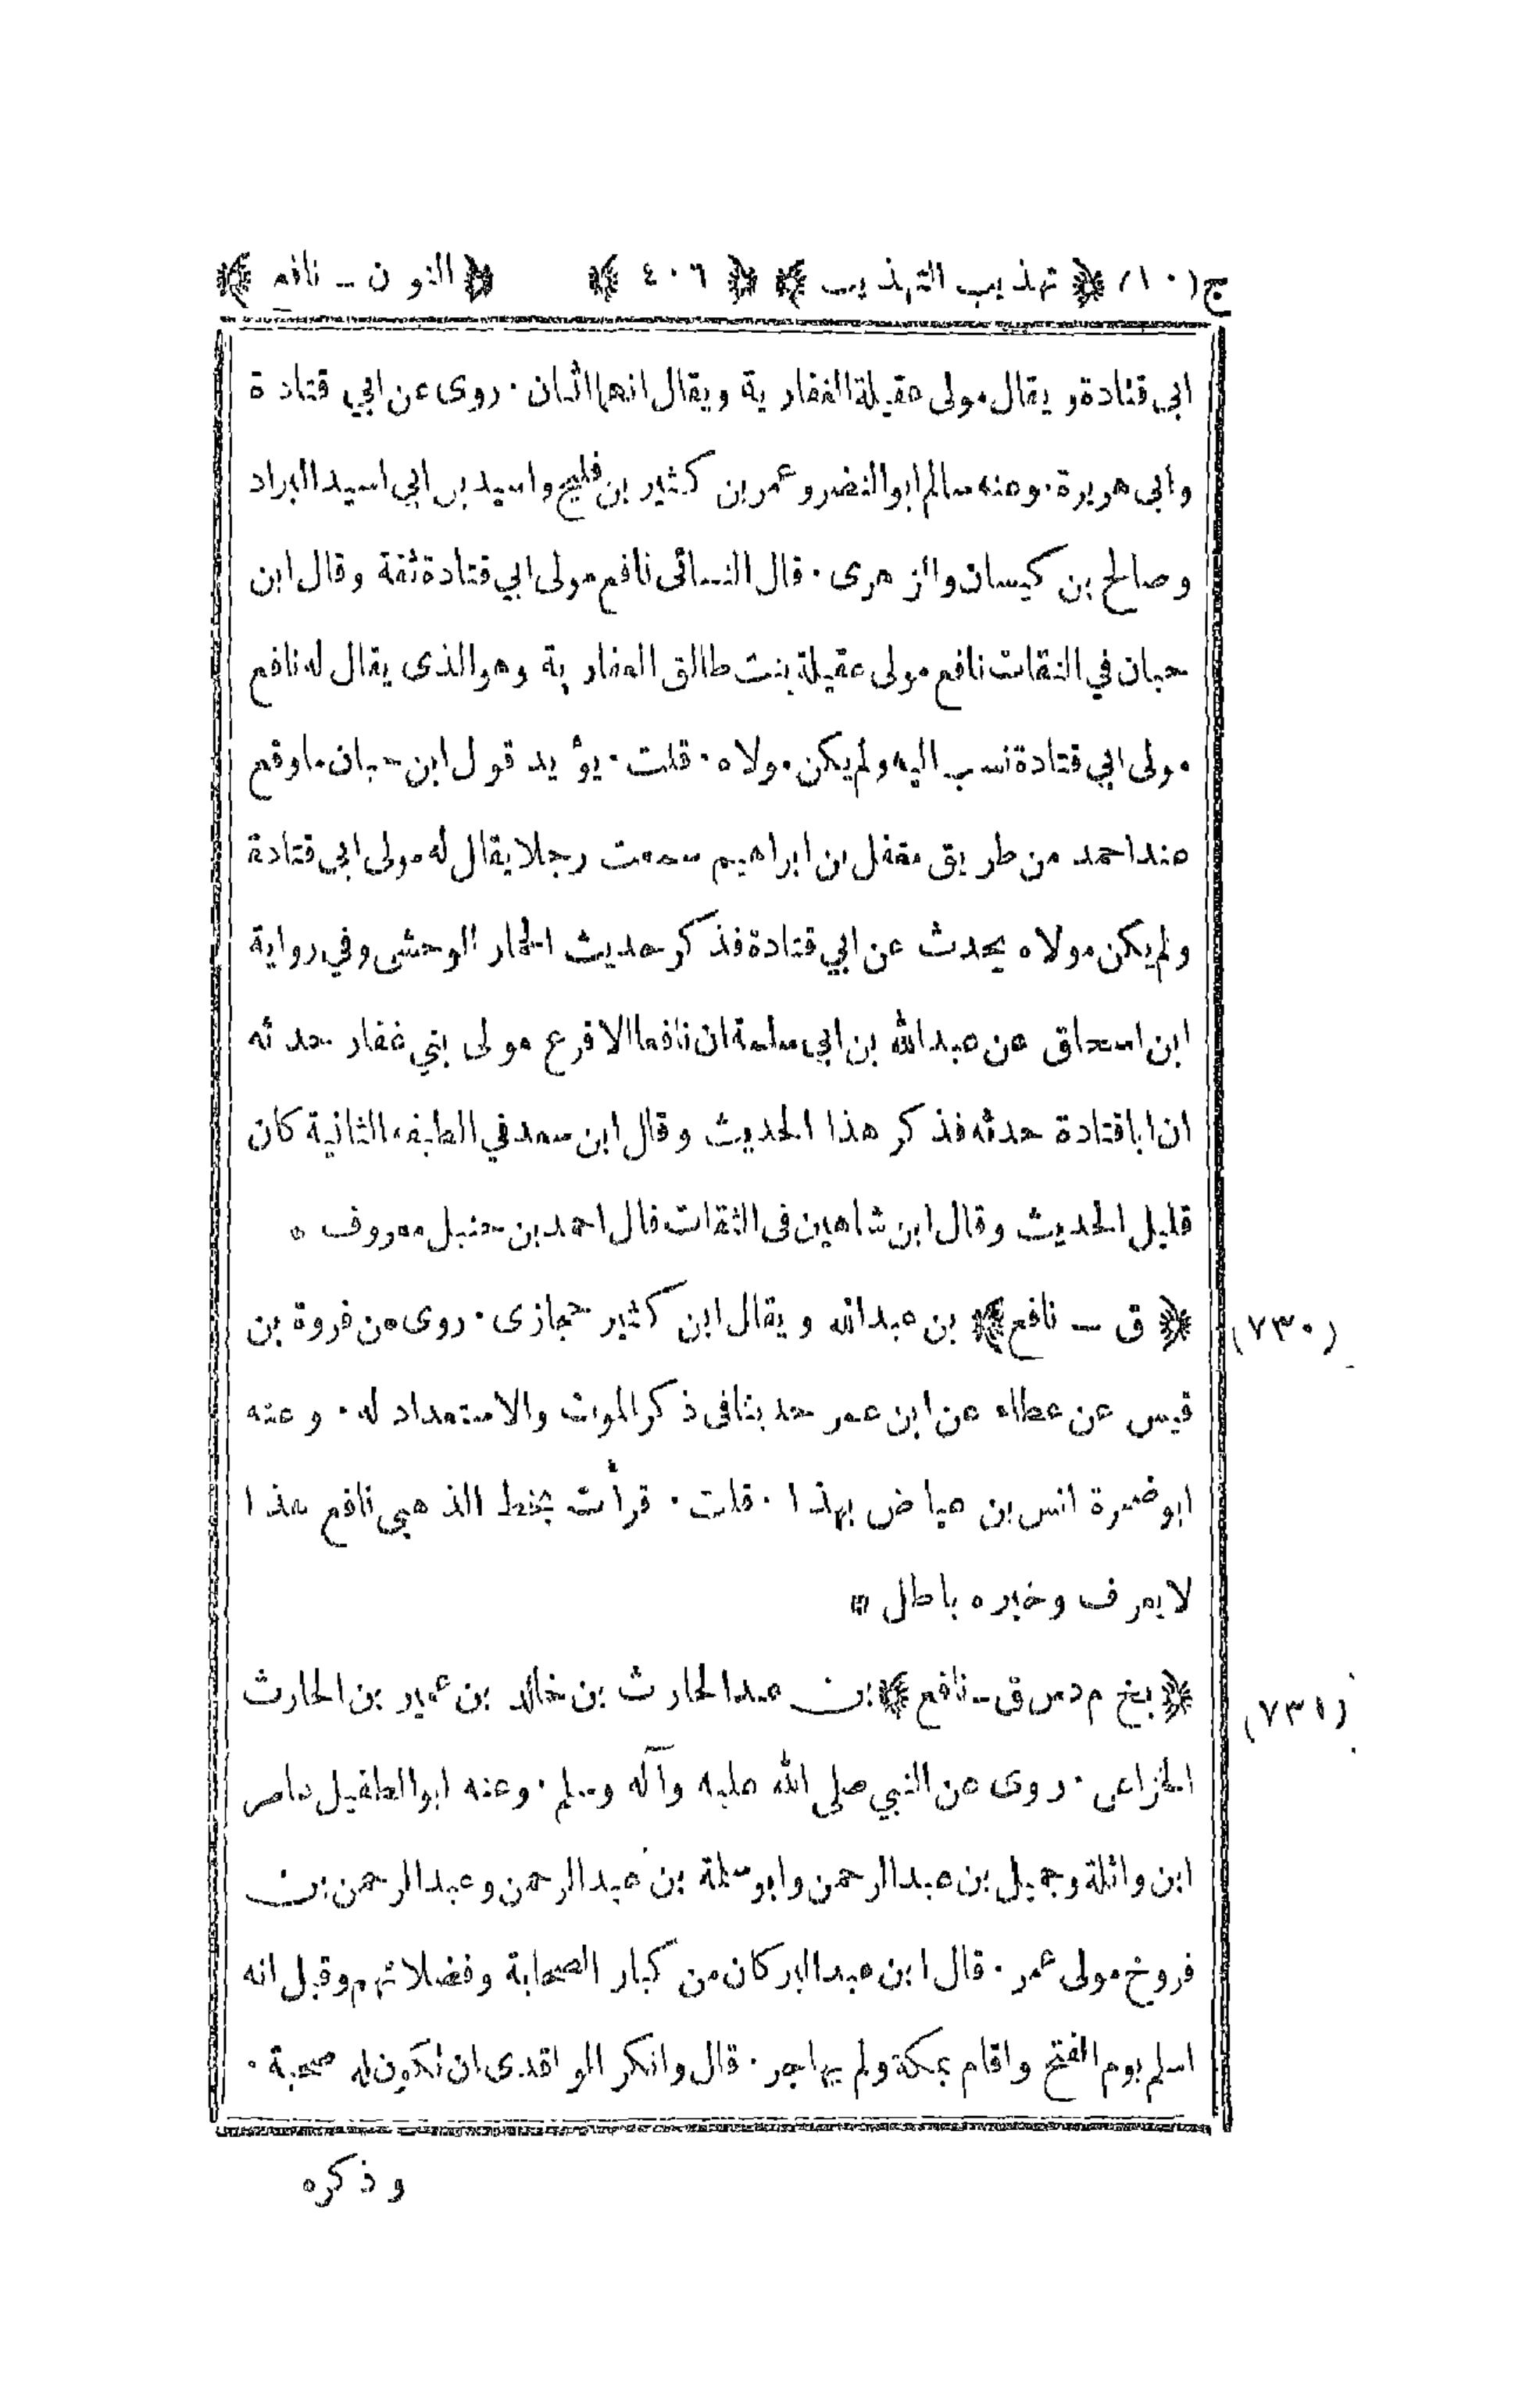 ج(١٠) ﴿ تهذيب التهذيب ﴾ ﴿ ٤٠٦ ﴾ ﴿ النون ـ نافع ﴾
ابى قتادة و يقال مولى عقيلة الغفارية ويقال انهما اثنان · روى عن ابي قتادة
وابى هريرة · وعنه سالم ابو النضر وعمر بن كثير بن فليح واسيد بن ابي اسيد البراد
وصالح بن كيسان والزهرى · قال النسائى نافع مولى ابي قتادة ثقة وقال ابن
حبان في الثقات نافع مولى عقيلة بنت طالق الغفارية وهو الذى يقال له نافع
مولى ابي قتادة نسب اليه ولم يكن مولاه · قلت · يؤيد قول ابن حبان ما وقع
عند احمد من طريق معقل بن ابراهيم سمعت رجلا يقال له مولى ابي قتادة
ولم يكن مولاه يحدث عن ابي قتادة فذكر حديث الحمار الوحشى وفي رواية
ابن اسحاق عن عبد الله بن ابي سلمة ان نافعا الاقرع مولى بني غفار حدثه
ان ابا قتادة حدثه فذكر هذا الحديث وقال ابن سعد في الطبقة الثانية كان
قليل الحديث وقال ابن شاهين فى الثقات قال احمد بن حنبل معروف *
(٧٣٠) ﴿ ق ـ نافع ﴾ بن عبد الله ويقال ابن كثير حجازى · روى عن فروة بن
قيس عن عطاء عن ابن عمر حديثا فى ذكر الموت والاستعداد له · وعنه
ابو ضمرة انس بن عياض بهذا · قلت · قرأت بخط الذهبى نافع هذا
لا يعرف وخبره باطل *
(٧٣١) ﴿ بخ م د س ق ـ نافع ﴾ بن عبد الحارث بن خالد بن عمير بن الحارث
الخزاعى · روى عن النبي صلى الله عليه وآله وسلم · وعنه ابو الطفيل عامر
ابن واثلة وجميل بن عبد الرحمن وابو سلمة بن عبد الرحمن وعبد الرحمن بن
فروخ مولى عمر · قال ابن عبد البر كان من كبار الصحابة وفضلائهم وقيل انه
اسلم يوم الفتح واقام بمكة ولم يهاجر · قال وانكر الواقدى ان تكون له صحبة ·
وذكره